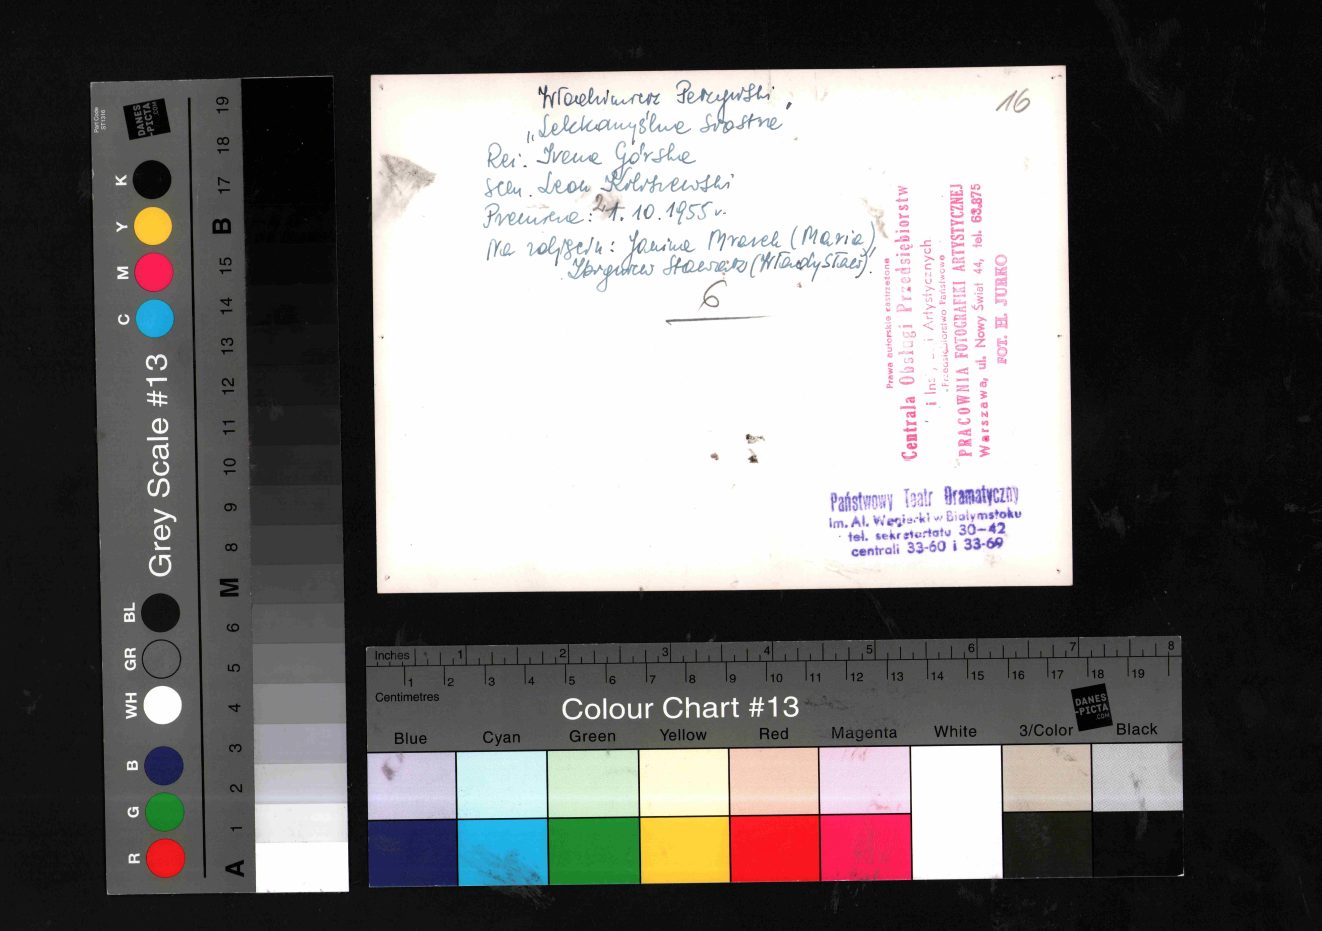 Włodzimierz Perzyński,
„Lekkomyślna siostra"
Reż. Irena Górska
scen. Leon Kołoszewski
Premiera: 21.10.1955 r.
Na zdjęciu: Janina Mrazek (Maria),
Zbigniew Stawarz (Władysław).
6
16
Prawa autorskie zastrzeżone
Centrala Obsługi Przedsiębiorstw
i Ins i Artystycznych
Przedsiębiorstwo Państwowe
PRACOWNIA FOTOGRAFIKI ARTYSTYCZNEJ
Warszawa, ul. Nowy Świat 44, tel. 63.875
FOT. H. JURKO
Państwowy Teatr Dramatyczny
im. Al. Węgierki w Białymstoku
tel. sekretariatu 30-42
centrali 33-60 i 33-69
Part Code
ST1316
DANES
-PICTA
.COM
K
Y
M
C
Grey Scale #13
BL
GR
WH
B
G
R
19
18
17
B
15
14
13
12
11
10
9
8
M
6
5
4
3
2
1
A
Inches 1 2 3 4 5 6 7 8
1 2 3 4 5 6 7 8 9 10 11 12 13 14 15 16 17 18 19
Centimetres
Colour Chart #13
DANES
-PICTA
.COM
Blue Cyan Green Yellow Red Magenta White 3/Color Black